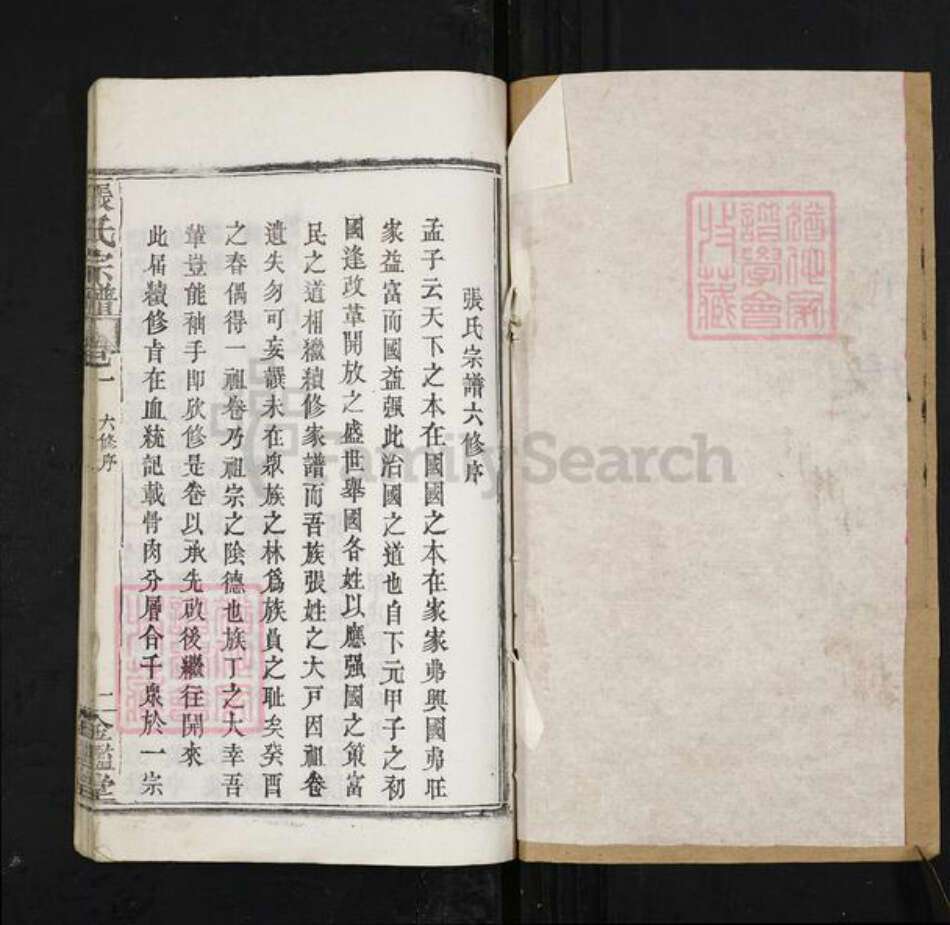 張氏宗譜六修序
孟子云天下之本在國國之本在家家弗興國弗旺
家益富而國益强此治國之道也自下元甲子之初
國逢改革開放之盛世舉國各姓以應强國之策富
民之道相繼續修家譜而吾族張姓之大戶因祖卷
遺失勿可妄譔未在眾族之林爲族員之耻矣癸酉
之春偶得一祖卷乃祖宗之陰德也族丁之大幸吾
輩豈能袖手即欣修是卷以承先啟後繼往開來
此届續修旨在血統記載骨肉分層合千眾於一宗
張氏宗譜
卷一
六修序
二
金鑑堂
FamilySearch